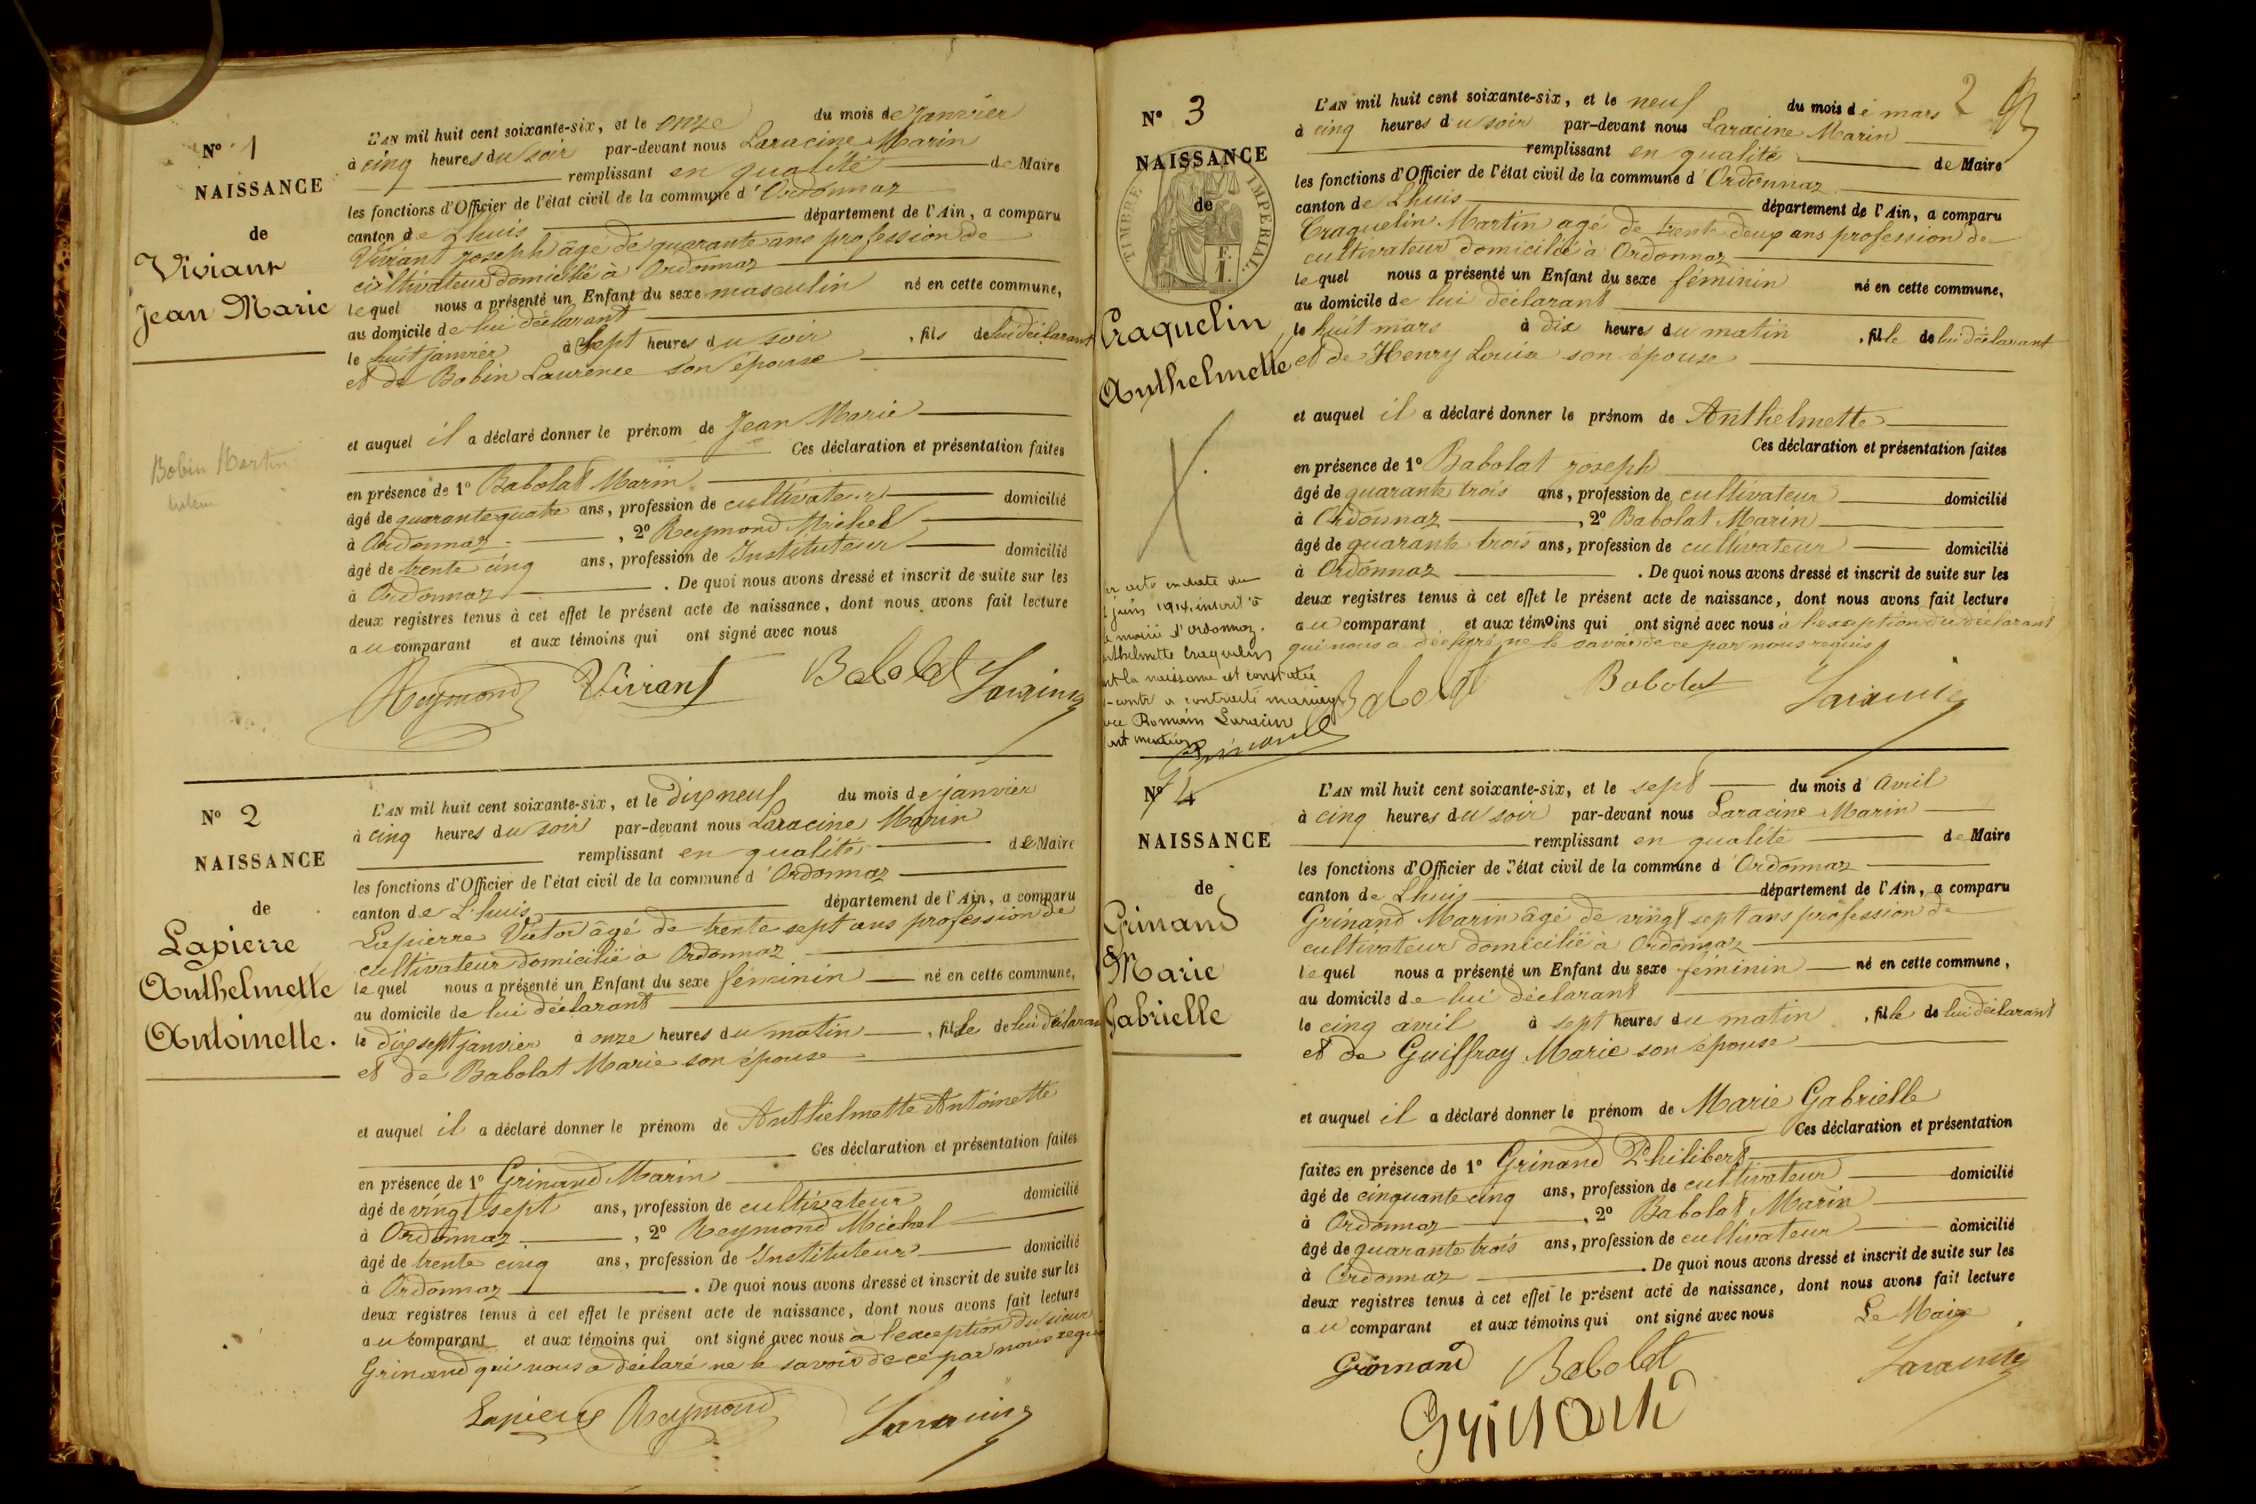 N° 1
NAISSANCE
de
Viviant
Jean Marie
Bobin Martin
L'AN mil huit cent soixante-six, et le onze du mois de Janvier
à cinq heures du soir par-devant nous Laracine Marin
remplissant en qualité de Maire
les fonctions d'Officier de l'état civil de la commune d'Ordonnaz
canton de Lhuis département de l'Ain, a comparu
Vivrant Joseph âgé de quarante ans profession de
cultivateur domicilié à Ordonnaz
lequel nous a présenté un Enfant du sexe masculin né en cette commune,
au domicile de lui déclarant
le huit janvier à sept heures du soir, fils de lui déclarant
et de Bobin Laurence son épouse
et auquel il a déclaré donner le prénom de Jean Marie
Ces déclaration et présentation faites
en présence de 1° Babolat Marin
âgé de quarante quatre ans, profession de cultivateur domicilié
à Ordonnaz, 2° Reymond Michel
âgé de trente cinq ans, profession de Instituteur domicilié
à Ordonnaz. De quoi nous avons dressé et inscrit de suite sur les
deux registres tenus à cet effet le présent acte de naissance, dont nous avons fait lecture
au comparant et aux témoins qui ont signé avec nous
Reymond Vivrant Babolat Laracine
N° 2
NAISSANCE
de
Lapierre
Anthelmette
Antoinette.
L'AN mil huit cent soixante-six, et le dix neuf du mois de janvier
à cinq heures du soir par-devant nous Laracine Marin
remplissant en qualité de Maire
les fonctions d'Officier de l'état civil de la commune d'Ordonnaz
canton de Lhuis département de l'Ain, a comparu
Lapierre Victor âgé de trente sept ans profession de
cultivateur domicilié à Ordonnaz
lequel nous a présenté un Enfant du sexe féminin né en cette commune,
au domicile de lui déclarant
le dix sept janvier à onze heures du matin, fille de lui déclarant
et de Babolat Marie son épouse
et auquel il a déclaré donner le prénom de Anthelmette Antoinette
Ces déclaration et présentation faites
en présence de 1° Grinand Marin
âgé de vingt sept ans, profession de cultivateur domicilié
à Ordonnaz, 2° Reymond Michel
âgé de trente cinq ans, profession de Instituteur domicilié
à Ordonnaz. De quoi nous avons dressé et inscrit de suite sur les
deux registres tenus à cet effet le présent acte de naissance, dont nous avons fait lecture
au comparant et aux témoins qui ont signé avec nous à l'exception du sieur
Grinand qui nous a déclaré ne le savoir de ce par nous requis
Lapierre Reymond Laracine
2
N° 3
NAISSANCE
de
TIMBRE IMPERIAL
Craquelin
Anthelmette
juin 1914, inscrit à
mairie d'Ordonnaz.
Anthelmette Craquelin
dont la naissance est constatée
ci-contre a contracté mariage
avec Romain Laracine
dont mention
L'AN mil huit cent soixante-six, et le neuf du mois de mars
à cinq heures du soir par-devant nous Laracine Marin
remplissant en qualité de Maire
les fonctions d'Officier de l'état civil de la commune d'Ordonnaz
canton de Lhuis département de l'Ain, a comparu
Craquelin Martin agé de trente deux ans profession de
cultivateur domicilié à Ordonnaz
lequel nous a présenté un Enfant du sexe féminin né en cette commune,
au domicile de lui déclarant
le huit mars à dix heures du matin, fille de lui déclarant
et de Henry Louise son épouse
et auquel il a déclaré donner le prénom de Anthelmette
Ces déclaration et présentation faites
en présence de 1° Babolat Joseph
âgé de quarante trois ans, profession de cultivateur domicilié
à Ordonnaz, 2° Babolat Marin
âgé de quarante trois ans, profession de cultivateur domicilié
à Ordonnaz. De quoi nous avons dressé et inscrit de suite sur les
deux registres tenus à cet effet le présent acte de naissance, dont nous avons fait lecture
au comparant et aux témoins qui ont signé avec nous à l'exception du déclarant
qui nous a déclaré ne le savoir de ce par nous requis
Babolat Babolat Laracine
N° 4
NAISSANCE
de
Grinand
Marie
Gabrielle
L'AN mil huit cent soixante-six, et le sept du mois d'Avril
à cinq heures du soir par-devant nous Laracine Marin
remplissant en qualité de Maire
les fonctions d'Officier de l'état civil de la commune d'Ordonnaz
canton de Lhuis département de l'Ain, a comparu
Grinand Marin âgé de vingt sept ans profession de
cultivateur domicilié à Ordonnaz
lequel nous a présenté un Enfant du sexe féminin né en cette commune,
au domicile de lui déclarant
le cinq avril à sept heures du matin, fille de lui déclarant
et de Guiffray Marie son épouse
et auquel il a déclaré donner le prénom de Marie Gabrielle
Ces déclaration et présentation
faites en présence de 1° Grinand Philibert
âgé de cinquante cinq ans, profession de cultivateur domicilié
à Ordonnaz, 2° Babolat Marin
âgé de quarante trois ans, profession de cultivateur domicilié
à Ordonnaz. De quoi nous avons dressé et inscrit de suite sur les
deux registres tenus à cet effet le présent acte de naissance, dont nous avons fait lecture
au comparant et aux témoins qui ont signé avec nous Le Maire
Grinand Babolat Laracine
Grinand